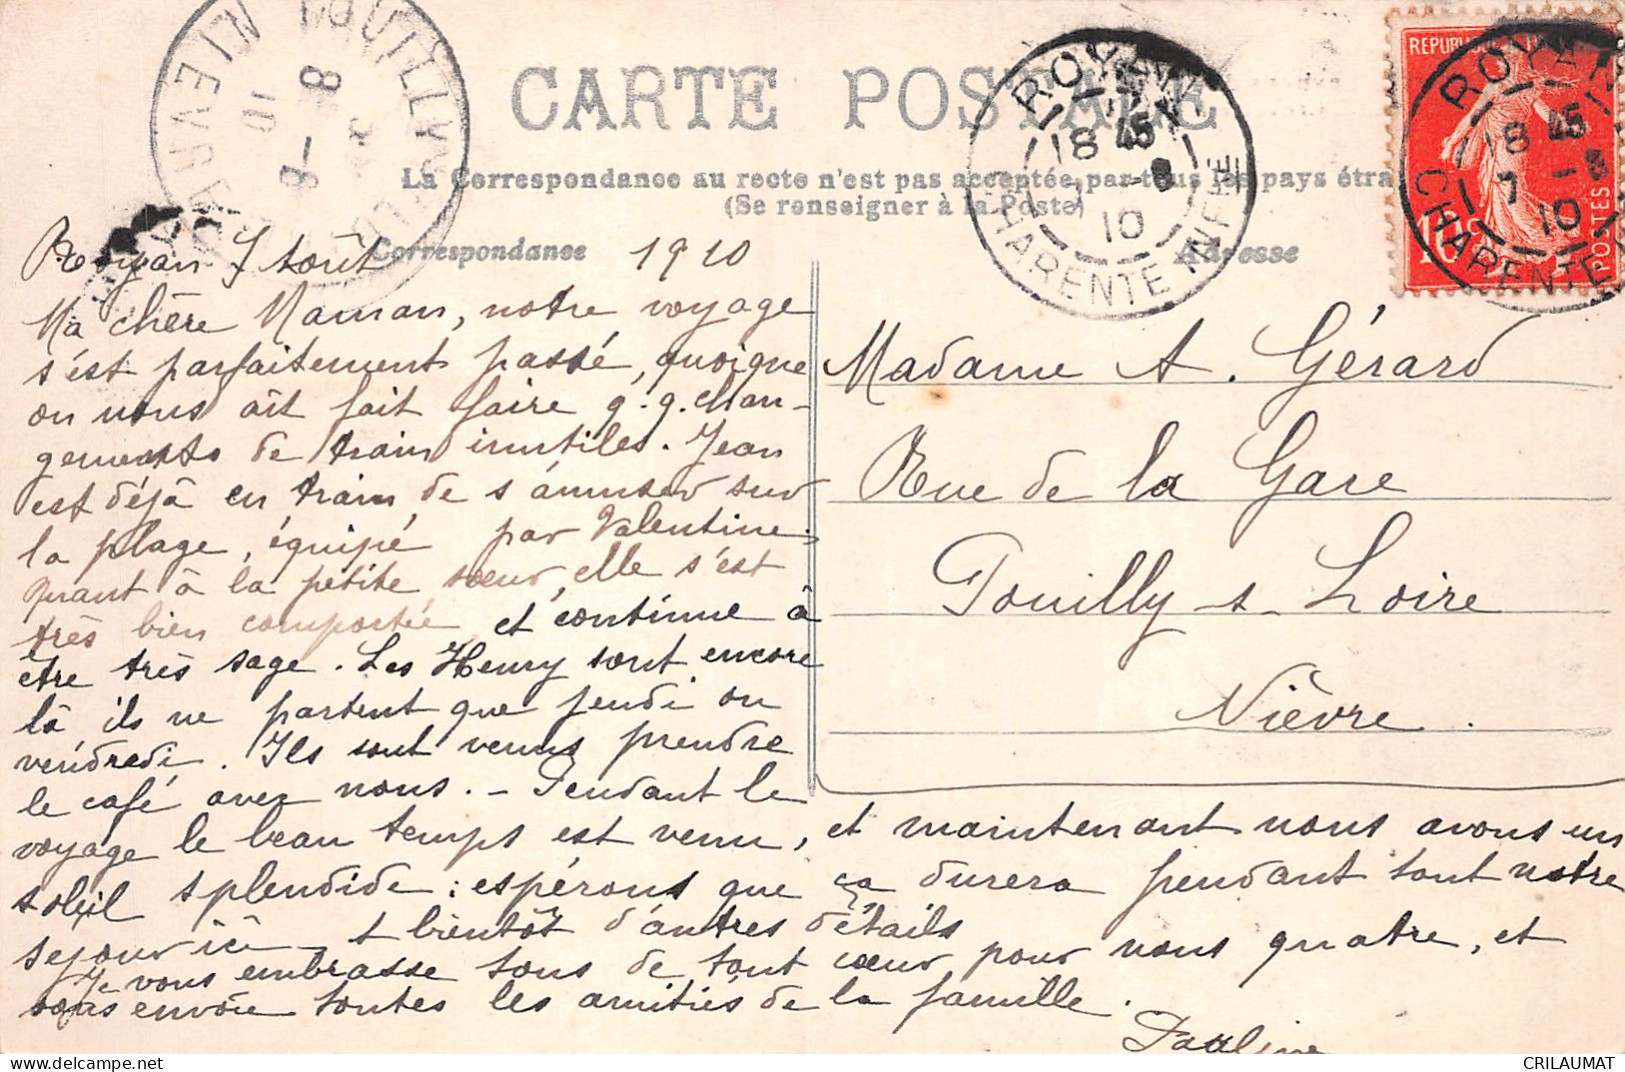 CARTE POSTALE
La Correspondance au recto n'est pas acceptée par tous les pays étra
(Se renseigner à la Poste)
Correspondance
Adresse
ROYAN
18 45
7 - 8
10
CHARENTE INFRE
REPUBLIQUE
10c
POSTES
ROYAN
18 45
7 - 8
10
CHARENTE
POUILLY
8 - 8
10
NIEVRE
Royan 7 Août 1910
Ma chère Maman, notre voyage
s'est parfaitement passé, quoique
on nous ait fait faire q.q. chan-
gements de train inutiles. Jean
est déjà en train de s'amuser sur
la plage, équipé par Valentine;
Quant à la petite sœur, elle s'est
très bien comportée et continue à
être très sage. Les Henry sont encore
là ils ne partent que jeudi ou
vendredi. Ils sont venus prendre
le café avec nous. - Pendant le
voyage le beau temps est venu, et maintenant nous avons un
soleil splendide: espérons que ça durera pendant tout notre
sejour ici. A bientôt d'autres détails
Je vous embrasse tous de tout cœur pour nous quatre, et
vous envoie toutes les amitiés de la famille.
Pauline
Madame A. Gérard
Rue de la Gare
Pouilly s- Loire
Nièvre.
CRILAUMAT